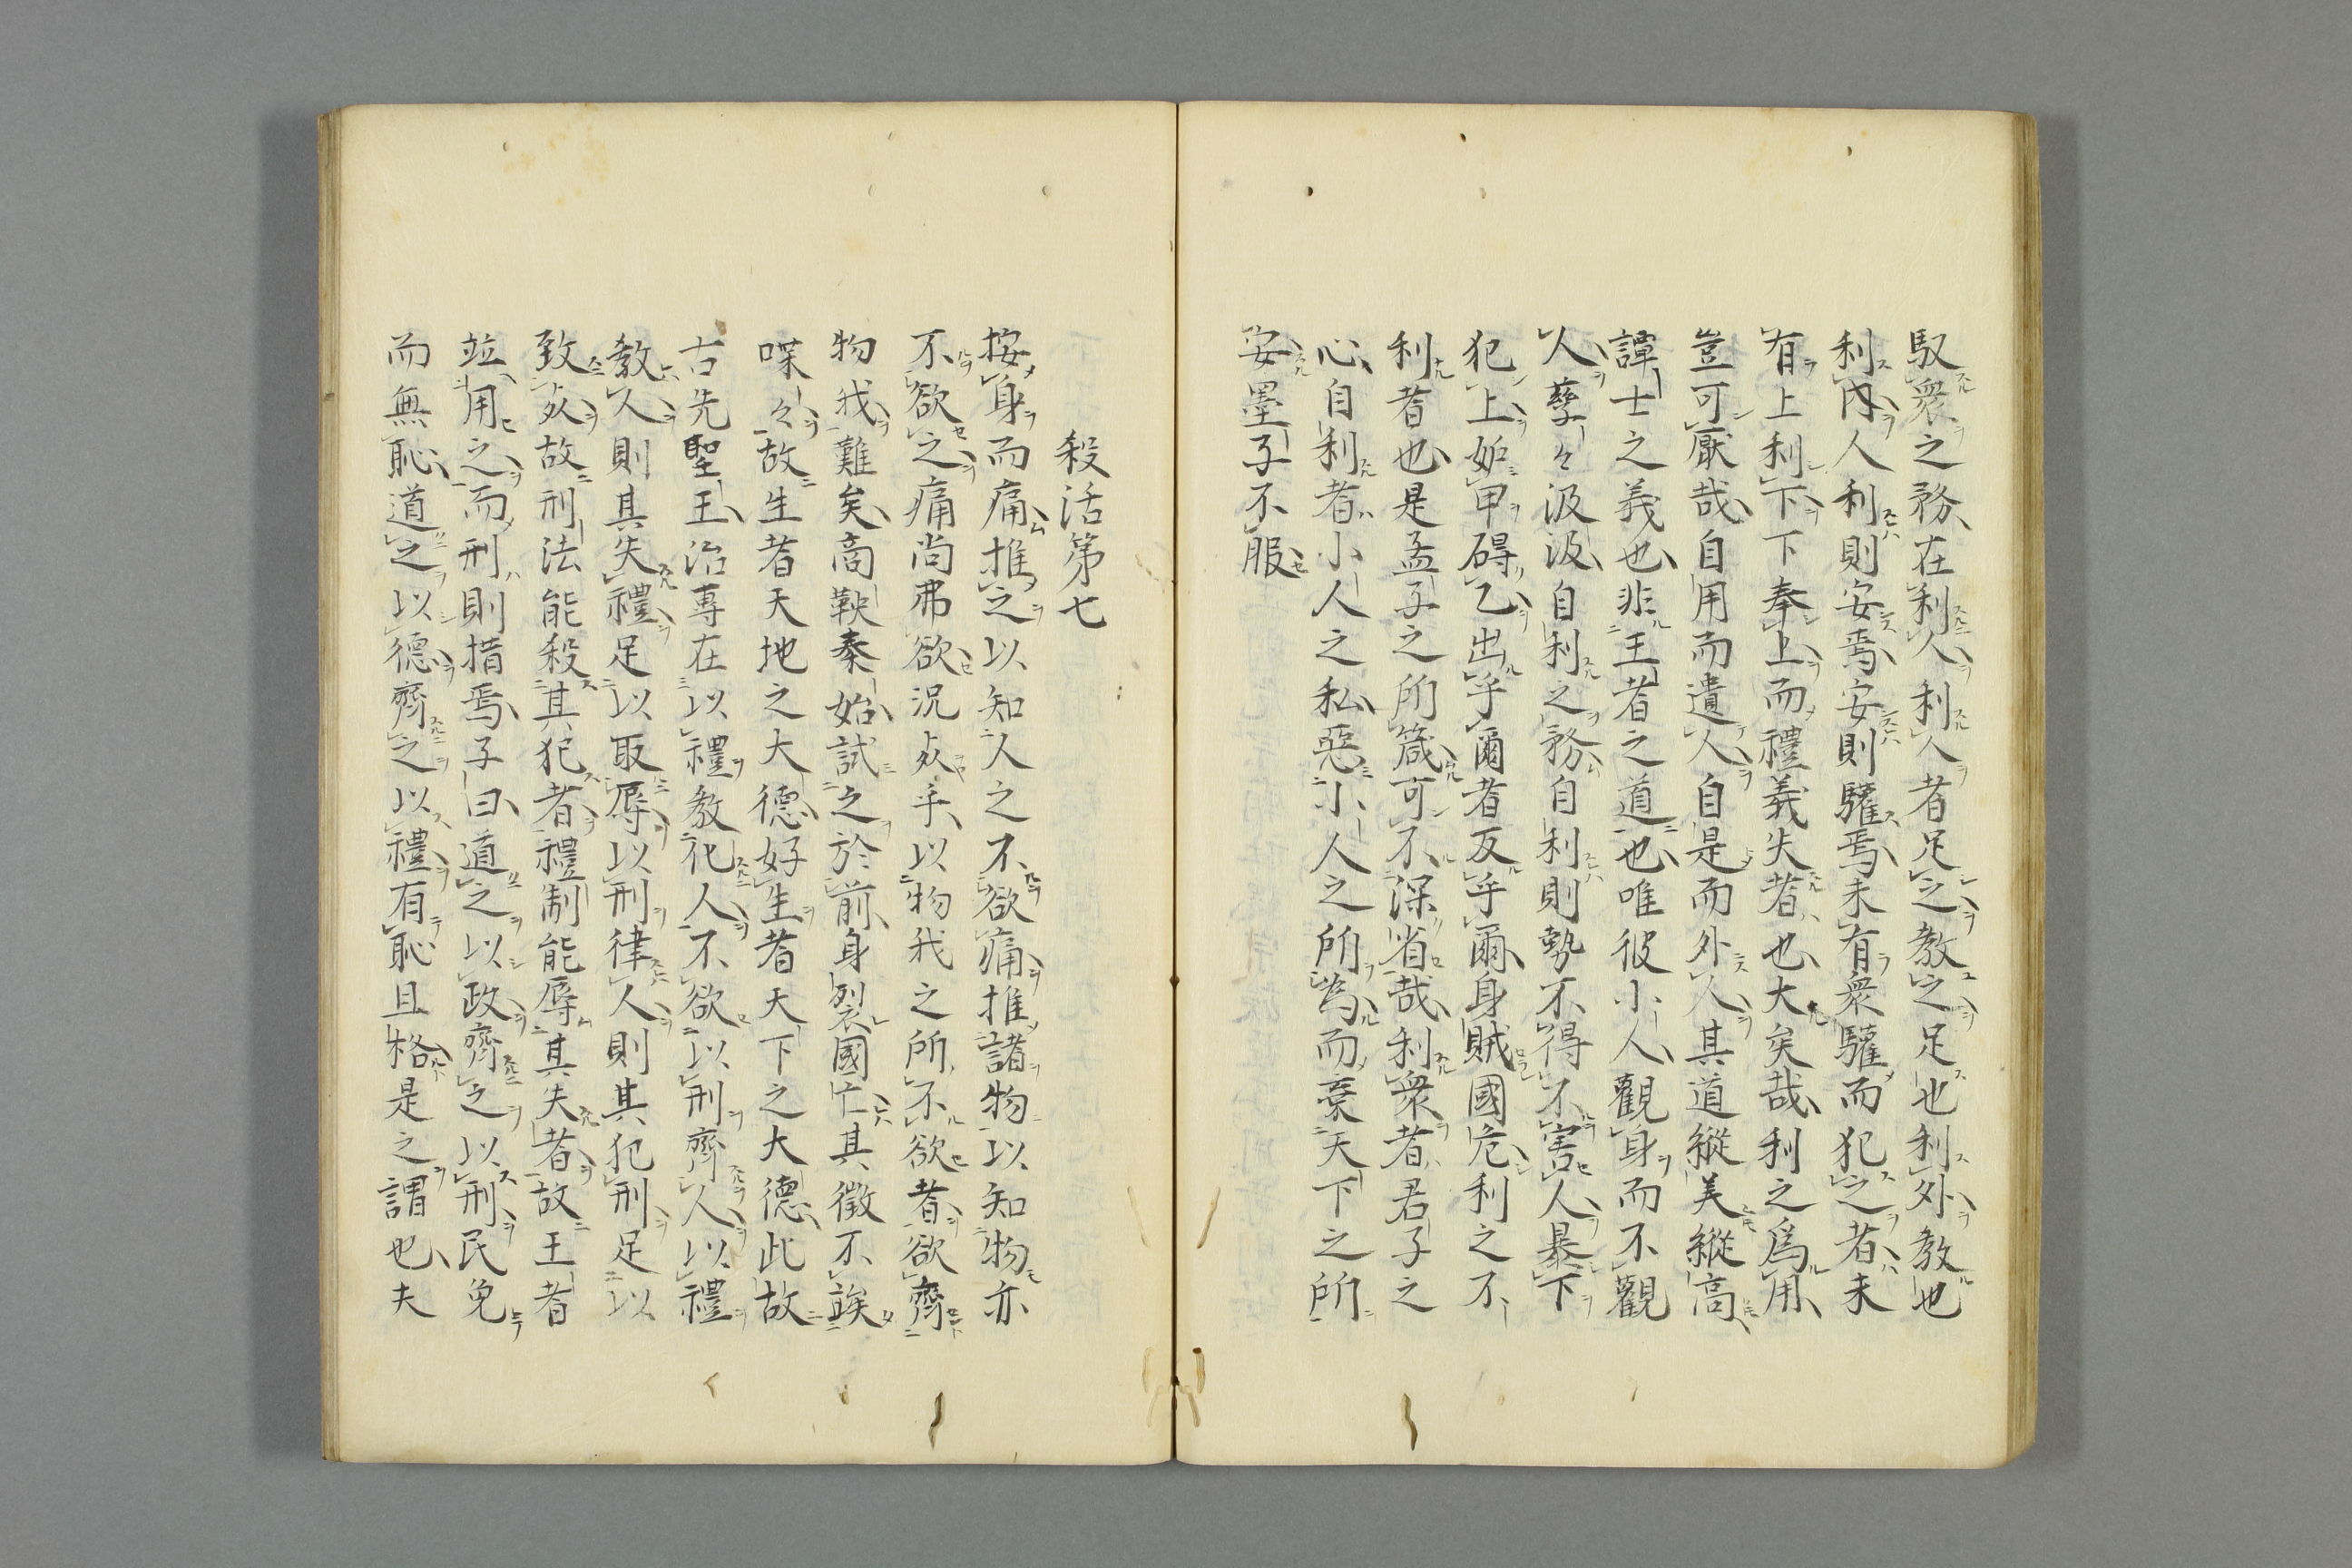 馭衆之務在利人利人者足之教之足也利外教也
利内人利則安焉安則驩焉未有衆驩而犯之者未
有上利下下奉上而禮義失者也大矣哉利之爲用
豈可厭哉自用而遺人自是而外人其道縱美縱高
譚士之義也非王者之道也唯彼小人觀身而不觀
人孳々汲汲自利之務自利則勢不得不害人暴下
犯上妬甲碍乙出乎爾者反乎爾身賊國危利之不
利者也是孟子之所箴可不深省哉利衆者君子之
心自利者小人之私惡小人之所為而棄天下之所
安墨子不服
殺活第七
按身而痛推之以知人之不欲痛推諸物以知物亦
不欲之痛尚弗欲況死乎以物我之所不欲者欲齊
物我難矣商鞅秦始試之於前身裂國亡其徴不竢
喋々故生者天地之大德好生者天下之大德此故
古先聖王治專在以禮教化人不欲以刑齊人以禮
教人則其失禮足以取辱以刑律人則其犯刑足以
致死故刑法能殺其犯者禮制能辱其失者故王者
並用之而刑則措焉子曰道之以政齊之以刑民免
而無恥道之以德齊之以禮有恥且格是之謂也夫